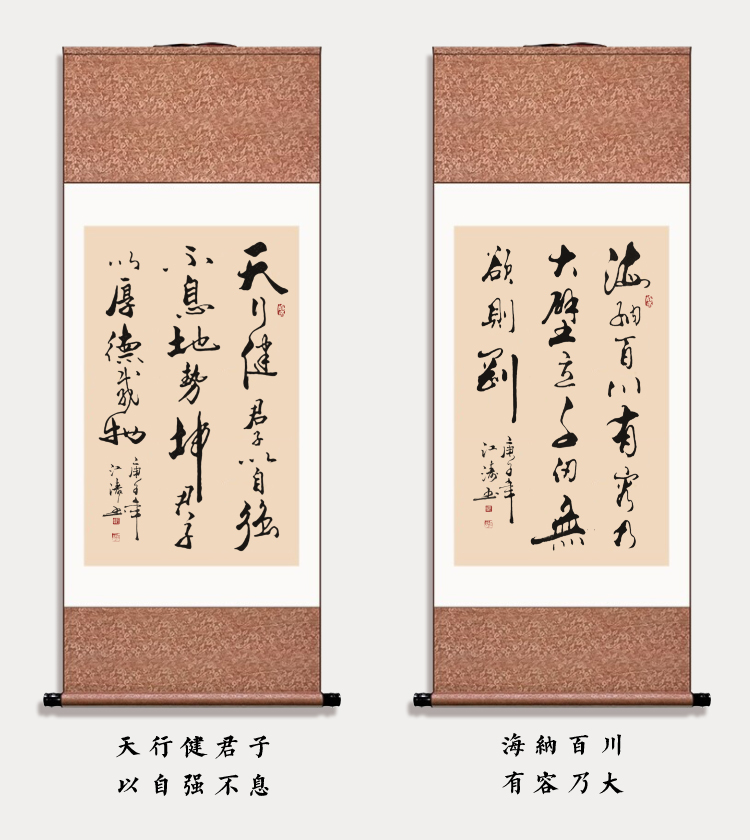 天行健君子以自强
不息地勢坤君子
以厚德載物
庚子年
江濤书
天行健君子
以自强不息
海納百川有容乃
大壁立千仞無
欲則剛
庚子年
江濤书
海納百川
有容乃大